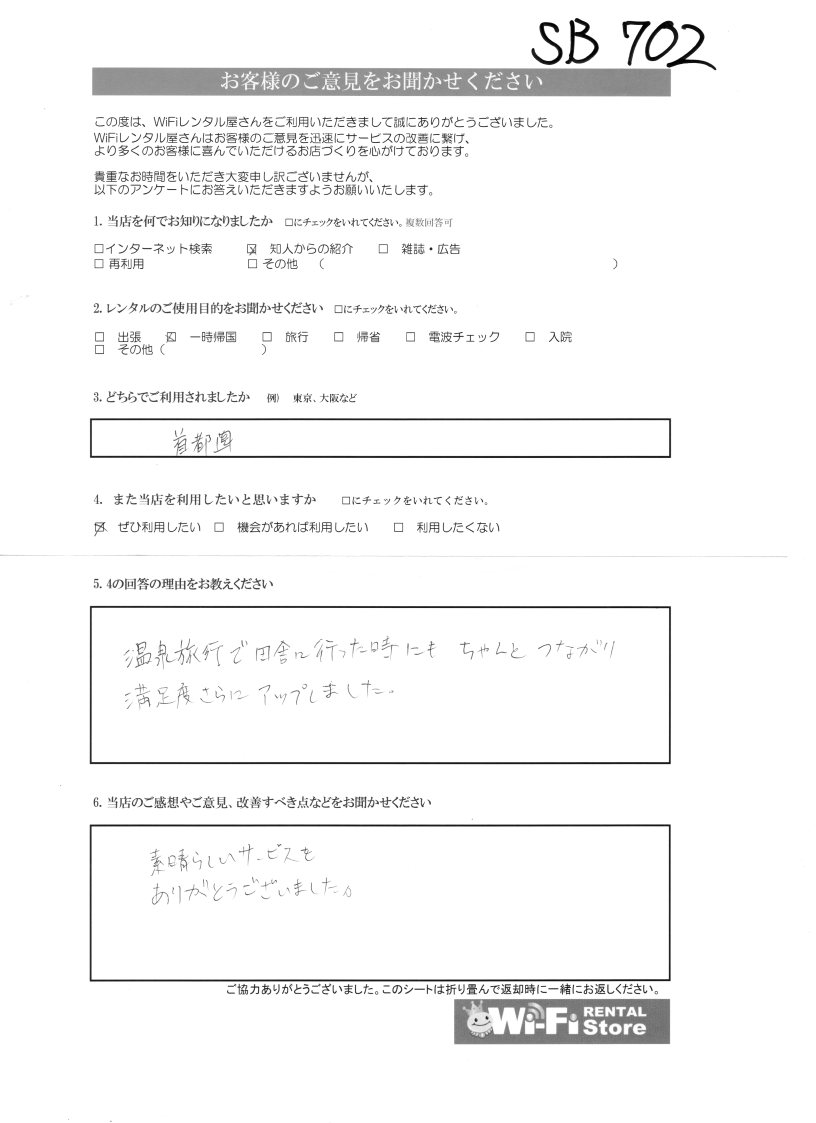 SB 702
お客様のご意見をお聞かせください
この度は、WiFiレンタル屋さんをご利用いただきまして誠にありがとうございました。
WiFiレンタル屋さんはお客様のご意見を迅速にサービスの改善に繋げ、
より多くのお客様に喜んでいただけるお店づくりを心がけております。
貴重なお時間をいただき大変申し訳ございませんが、
以下のアンケートにお答えいただきますようお願いいたします。
1. 当店を何でお知りになりましたか　□にチェックをいれてください。複数回答可
□インターネット検索　☑ 知人からの紹介　□ 雑誌・広告
□ 再利用　□ その他　（　）
2. レンタルのご使用目的をお聞かせください　□にチェックをいれてください。
□ 出張　☑ 一時帰国　□ 旅行　□ 帰省　□ 電波チェック　□ 入院
□ その他（　）
3. どちらでご利用されましたか　例）　東京、大阪など
首都圏
4. また当店を利用したいと思いますか　□にチェックをいれてください。
☑ ぜひ利用したい　□ 機会があれば利用したい　□ 利用したくない
5. 4の回答の理由をお教えください
温泉旅行で田舎に行った時にも ちゃんと つながり
満足度さらに アップしました。
6. 当店のご感想やご意見、改善すべき点などをお聞かせください
素晴らしいサービスを
ありがとうございました。
ご協力ありがとうございました。このシートは折り畳んで返却時に一緒にお返しください。
Wi-Fi RENTAL Store